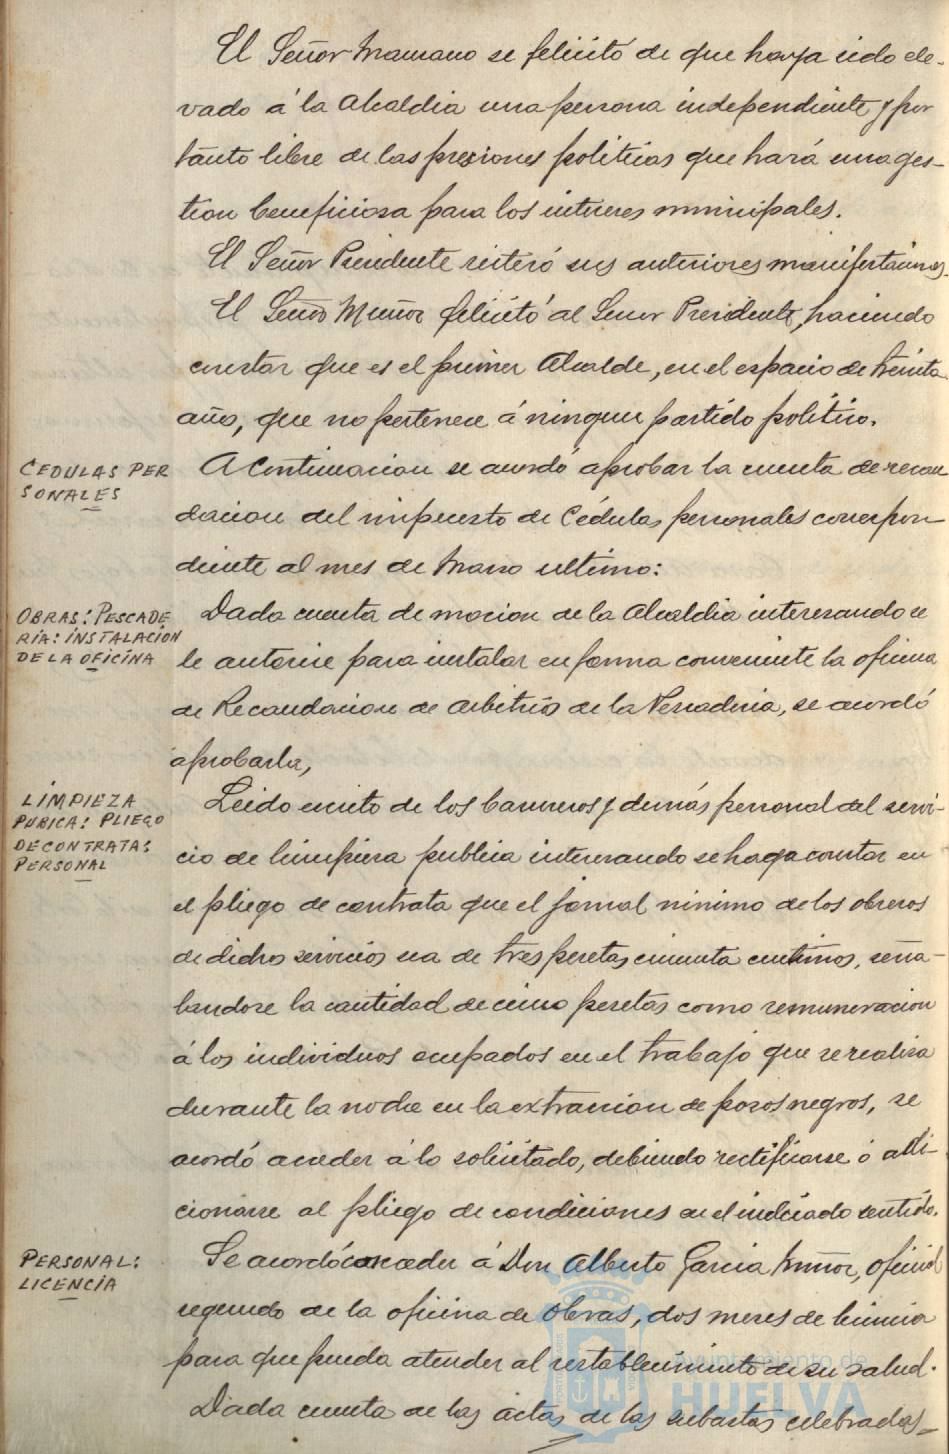 El Señor Manzano se felicitó de que haya sido ele-
vado á la Alcaldia una persona independiente y por
tanto libre de las presiones politicas que hará una ges-
tion beneficiosa para los intereses municipales.
El Señor Presidente reiteró sus anteriores manifestaciones.
El Señor Muñoz felicitó al Señor Presidente, haciendo
constar que es el primer Alcalde, en el espacio de treinta
años, que no pertenece á ningun partido politico.
CEDULAS PER
SONALES
A Continuacion se acordó aprobar la cuenta de recau
dacion del impuesto de Cédulas personales correspon-
diente al mes de Marzo ultimo:
OBRAS: PESCADE
RIA: INSTALACION
DE LA OFICINA
Dada cuenta de mocion de la Alcaldia interesando se
le autorice para instalar en forma conveniente la oficina
de Recaudacion de Arbitrios de la Pescaderia, se acordó
aprobarla,
LIMPIEZA
PUBICA: PLIEGO
DE CONTRATA:
PERSONAL
Leido escrito de los barreneros y demás personal del servi-
cio de limpieza publica interesando se haga constar en
el pliego de contrata que el jornal minimo de los obreros
de dichos servicios sea de tres pesetas cincuenta centimos, seña-
landose la cantidad de cinco pesetas como remuneracion
á los individuos ocupados en el trabajo que se realiza
durante la noche en la extraccion de pozos negros, se
acordó acceder á lo solicitado, debiendo rectificarse ó adi-
cionarse al pliego de condiciones en el indicado sentido.
PERSONAL:
LICENCIA
Se acordó conceder á Don Alberto Garcia Muñoz, oficial
segundo de la oficina de Obras, dos meses de licencia
para que pueda atender al restablecimiento de su salud.
Dada cuenta de las actas de las subastas celebradas
Ayuntamiento de
HUELVA